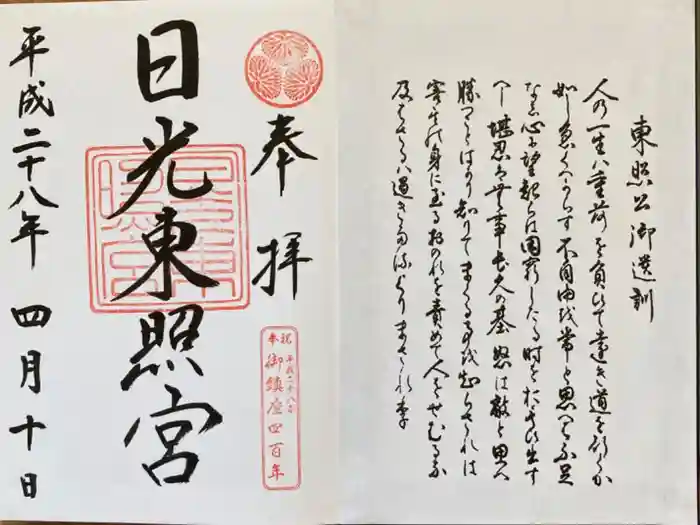 東照公御遺訓
人の一生ハ重荷を負ひて遠き道を行くか
如し急くへからす不自由を常と思へハ不足
なし心に望起らは困窮したる時を思ひ出す
へし堪忍ハ無事長久の基怒は敵と思へ
勝つことはかり知りてまくる事を知らされは
害其の身に至る於のれを責めて人をせむるな
及はさるハ過きたるよりまされり
奉拝
日光東照宮
平成二十八年四月十日
奉祝
平成二十八年
御鎮座四百年